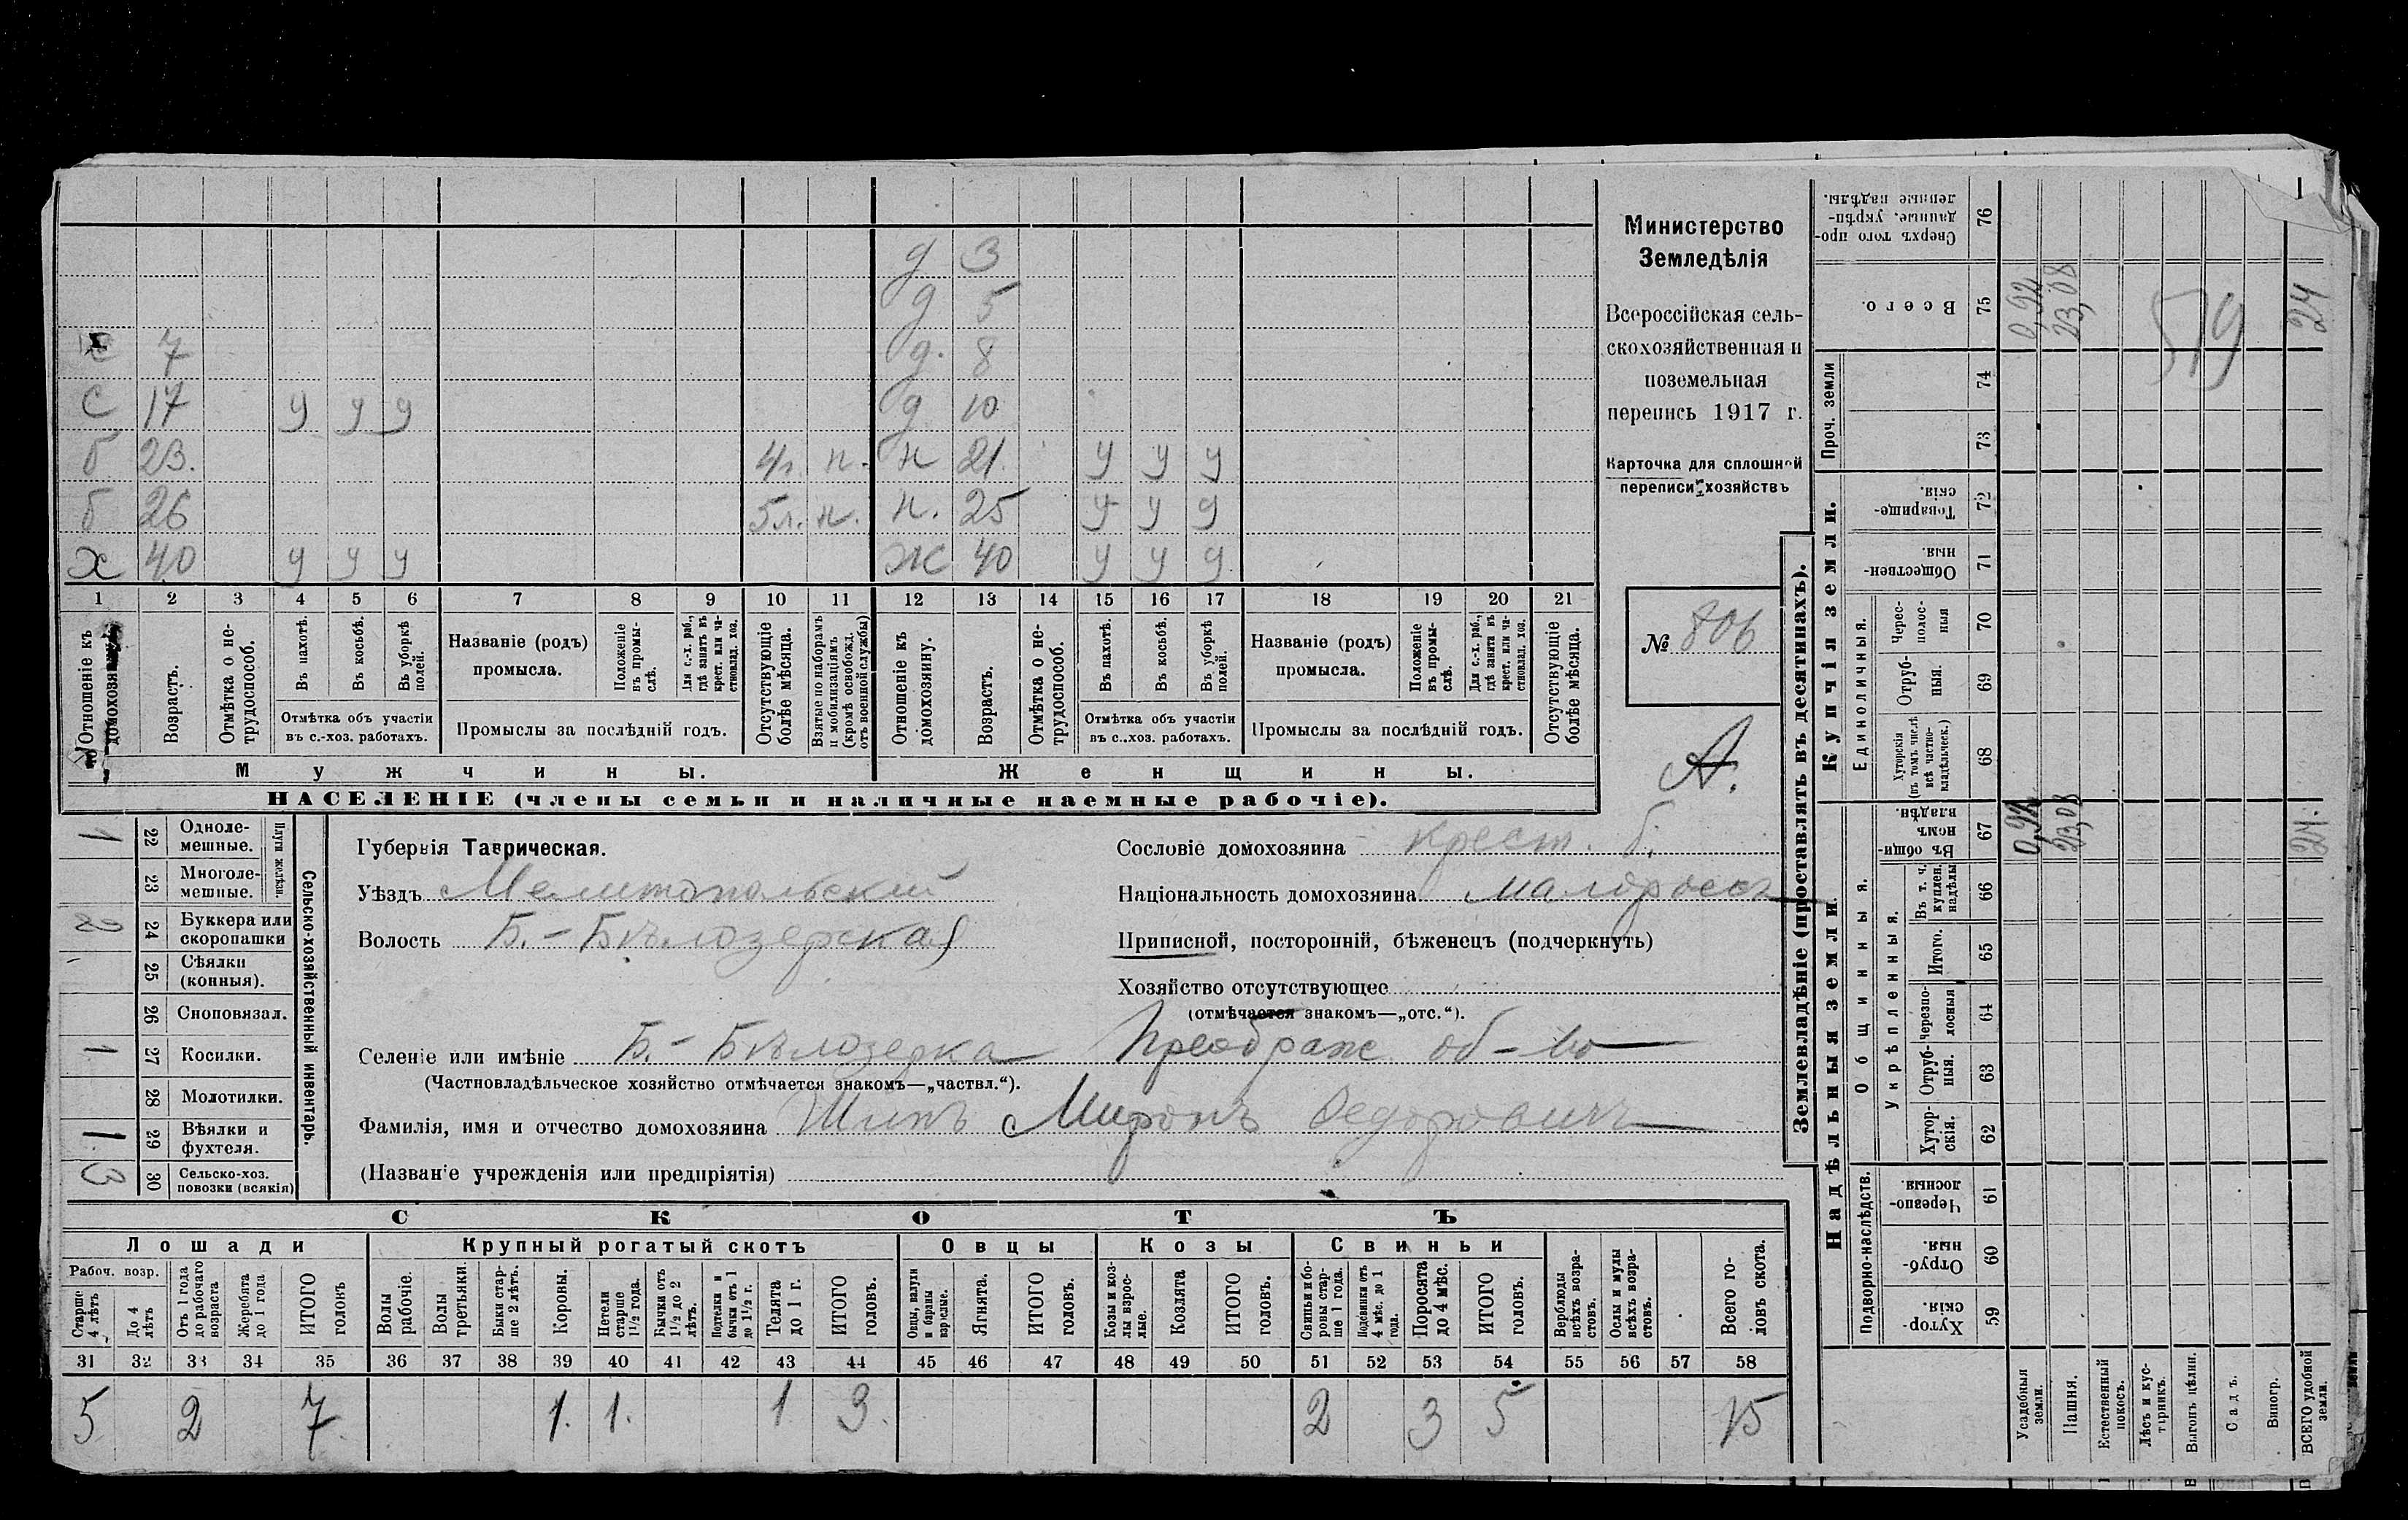 д 3
д 5
7 д. 8
С 17 у у у д 10
б 23. 4 г. н. н 21. у у у
б 26 5 л. н. н. 25 у у у
х 40 у у у Ж 40 у у у
1 2 3 4 5 6 7 8 9 10 11 12 13 14 15 16 17 18 19 20 21
Отношеніе къ домохозяину.
Возрастъ.
Отмѣтка о нетрудоспособ.
Въ пахотѣ.
Въ косьбѣ.
Въ уборкѣ полей.
Отмѣтка объ участіи въ с.-хоз. работахъ.
Названіе (родъ) промысла.
Положеніе въ промыслѣ.
Для с.-х. раб., гдѣ занятъ въ крест. или частновлад. хоз.
Промыслы за послѣдній годъ.
Отсутствующіе болѣе мѣсяца.
Взятые по наборамъ и мобилизаціямъ (кромѣ освобожд. отъ военной службы)
Отношеніе къ домохозяину.
Возрастъ.
Отмѣтка о нетрудоспособ.
Въ пахотѣ.
Въ косьбѣ.
Въ уборкѣ полей.
Отмѣтка объ участіи въ с.-хоз. работахъ.
Названіе (родъ) промысла.
Положеніе въ промыслѣ.
Для с.-х. раб., гдѣ занята въ крест. или частновлад. хоз.
Промыслы за послѣдній годъ.
Отсутствующіе болѣе мѣсяца.
Мужчины. Женщины.
НАСЕЛЕНІЕ (члены семьи и наличные наемные рабочіе).
Министерство
Земледѣлія
Всероссійская сель-
скохозяйственная и
поземельная
перепись 1917 г.
Карточка для сплошной
переписи хозяйствъ
№ 806
А.
Сельско-хозяйственный инвентарь.
Плуги желѣзн.
1 22 Одноле-
мешные.
23 Многоле-
мешные.
24 Буккера или
скоропашки
25 Сѣялки
(конныя).
26 Сноповязал.
1 27 Косилки.
28 Молотилки.
1 29 Вѣялки и
фухтеля.
3 30 Сельско-хоз.
повозки (всякія)
Губернія Таврическая.
Уѣздъ Мелитопольский
Волость Б.-Бѣлозерская
Селеніе или имѣніе Б.-Бѣлозерка Преображ. об-во
(Частновладѣльческое хозяйство отмѣчается знакомъ—„частвл.“).
Фамилія, имя и отчество домохозяина Шипъ Миронъ Федоровичъ
(Названіе учрежденія или предпріятія)
Сословіе домохозяина крест. б.
Національность домохозяина малороссъ
Приписной, посторонній, бѣженецъ (подчеркнуть)
Хозяйство отсутствующее
(отмѣчается знакомъ—„отс.“).
СКОТЪ
Лошади Крупный рогатый скотъ Овцы Козы Свиньи
Рабоч. возр.
Старше 4 лѣтъ
До 4 лѣтъ
Отъ 1 года до рабочаго возраста
Жеребята до 1 года
ИТОГО головъ
Волы рабочіе.
Волы третьяки.
Быки старше 2 лѣтъ.
Коровы.
Нетели старше 1½ года.
Бычки отъ 1½ до 2 лѣтъ.
Подтелки и бычки отъ 1 до 1½ г.
Телята до 1 г.
ИТОГО головъ.
Овцы, валухи и бараны взрослые.
Ягнята.
ИТОГО головъ.
Козы и козлы взрослые.
Козлята
ИТОГО головъ.
Свиньи и боровы старше 1 года.
Подсвинки отъ 4 мѣс. до 1 года.
Поросята до 4 мѣс.
ИТОГО головъ.
Верблюды всѣхъ возрастовъ.
Ослы и мулы всѣхъ возрастовъ.
Всего головъ скота.
31 32 33 34 35 36 37 38 39 40 41 42 43 44 45 46 47 48 49 50 51 52 53 54 55 56 57 58
5 2 7 1. 1. 1 3. 2 3 5 15
Землевладѣніе (проставлять въ десятинахъ).
Надѣльныя земли. Купчія земли. Проч. земли
Подворно-наслѣдств.
Общинныя.
Укрѣпленныя.
Единоличныя.
59 Хуторскія.
60 Отрубныя.
61 Черезполосныя.
62 Хуторскія.
63 Отрубныя.
64 Черезполосныя
65 Итого.
66 Въ т. ч. куплен. надѣлы
67 Въ общинномъ владѣн.
68 Хуторскія (въ томъ числѣ всѣ частновладѣльческ.)
69 Отрубныя.
70 Чересполосныя
71 Общественныя.
72 Товарищескія.
73
74
75 Всего.
76 Сверхъ того проданные, укрѣпленные надѣлы.
Усадебныя земли. 0,92 0,92
Пашня. 23,08 23,08
Естественный покосъ.
Лѣсъ и кустарникъ.
Выгонъ цѣлин.
Садъ.
Виногр.
ВСЕГО удобной земли. 24. 24
519